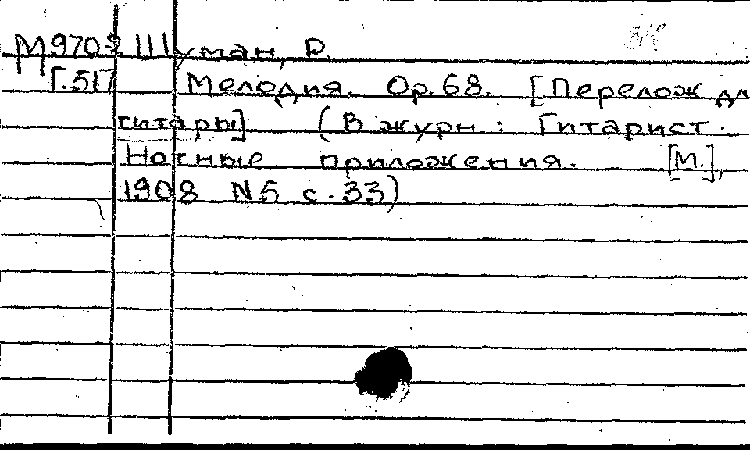 М970₂ Шуман, Р.
Г.517 Мелодия. Op. 68. [Перелож дл
гитары] (В журн.: Гитарист.
Нотные приложения. [М.],
1908 N5 с. 33)